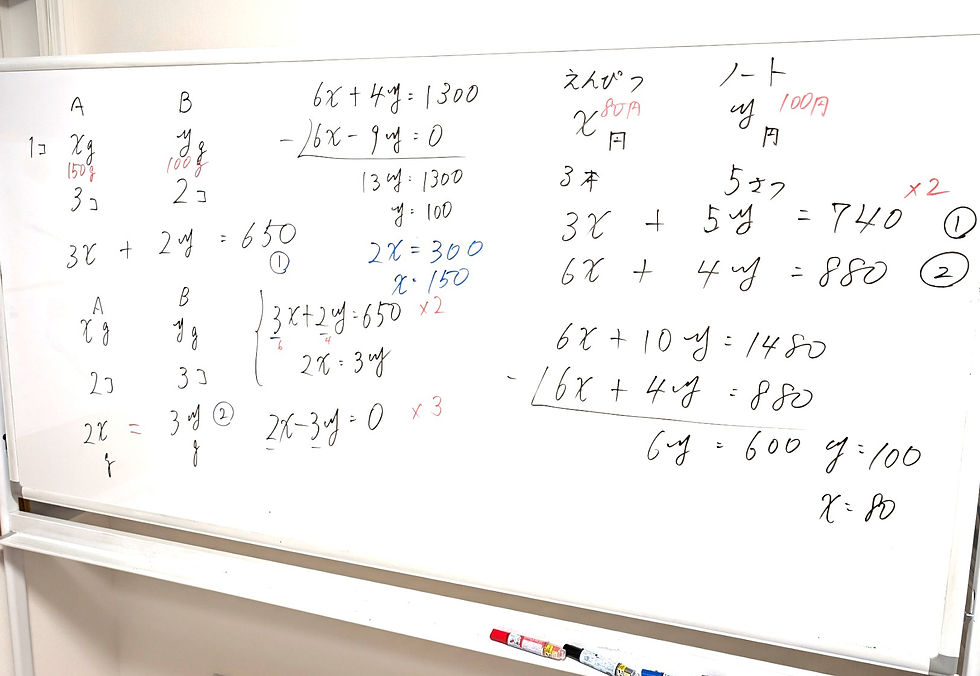 A B
1コ xg yg
150g 100g
3コ 2コ
3x + 2y = 650
①
A B
xg yg
2コ 3コ
2x = 3y ②
g g
6x+4y=1300
-)6x-9y=0
13y=1300
y=100
2x=300
x=150
3x+2y=650 ×2
6 4
2x=3y
2x-3y=0 ×3
えんぴつ ノート
x 80円 y 100円
円 円
3本 5さつ
×2
3x + 5y = 740 ①
6x + 4y = 880 ②
6x+10y=1480
-)6x+4y=880
6y=600 y=100
x=80